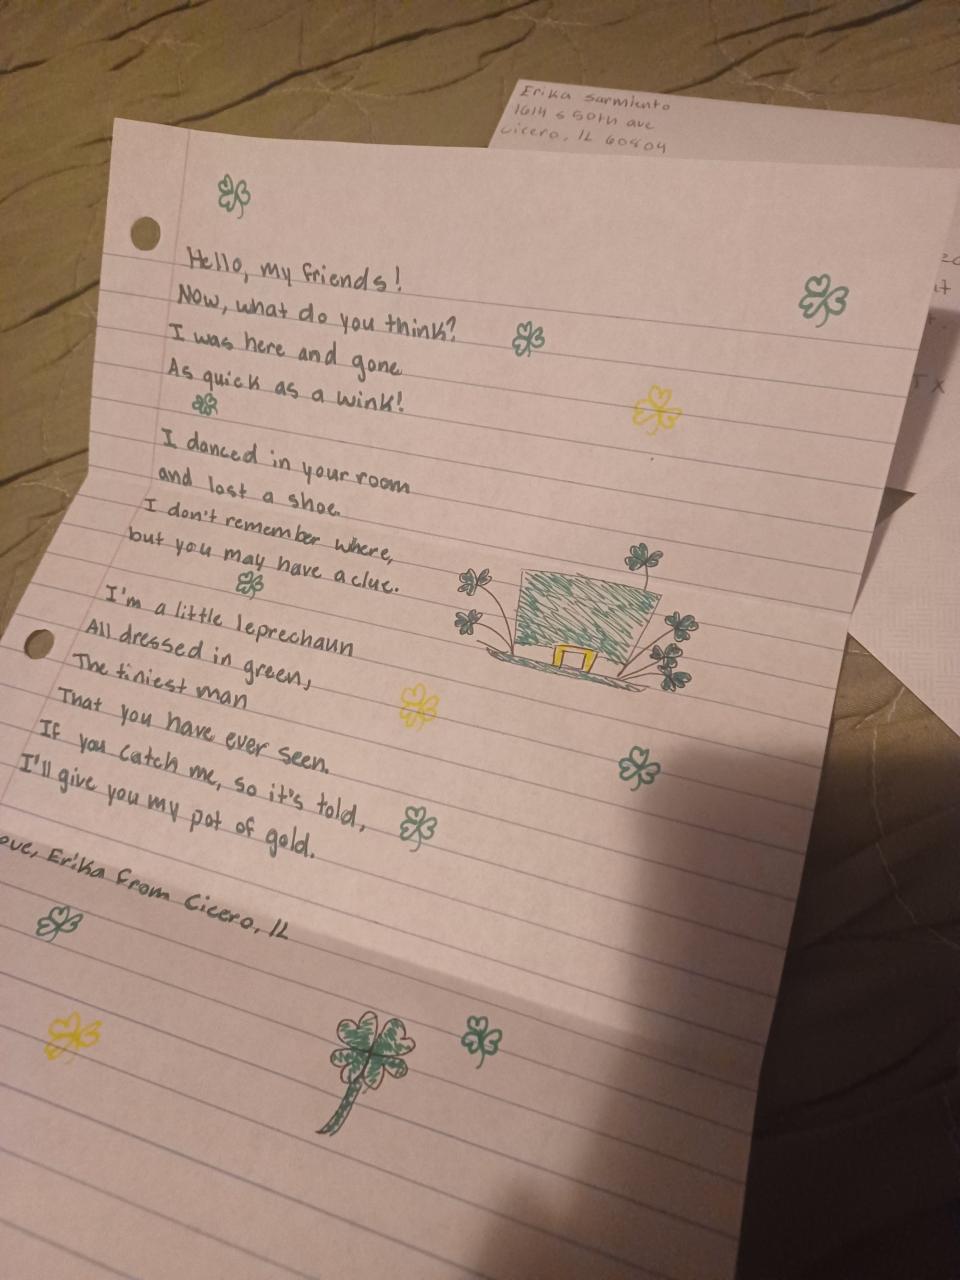 Erika Sarmiento
1614 s 50th ave
Cicero, IL 60804
Hello, my friends!
Now, what do you think?
I was here and gone
As quick as a wink!
I danced in your room
and lost a shoe.
I don't remember where,
but you may have a clue.
I'm a little leprechaun
All dressed in green,
The tiniest man
That you have ever seen.
If you catch me, so it's told,
I'll give you my pot of gold.
ove, Erika from Cicero, IL
TX